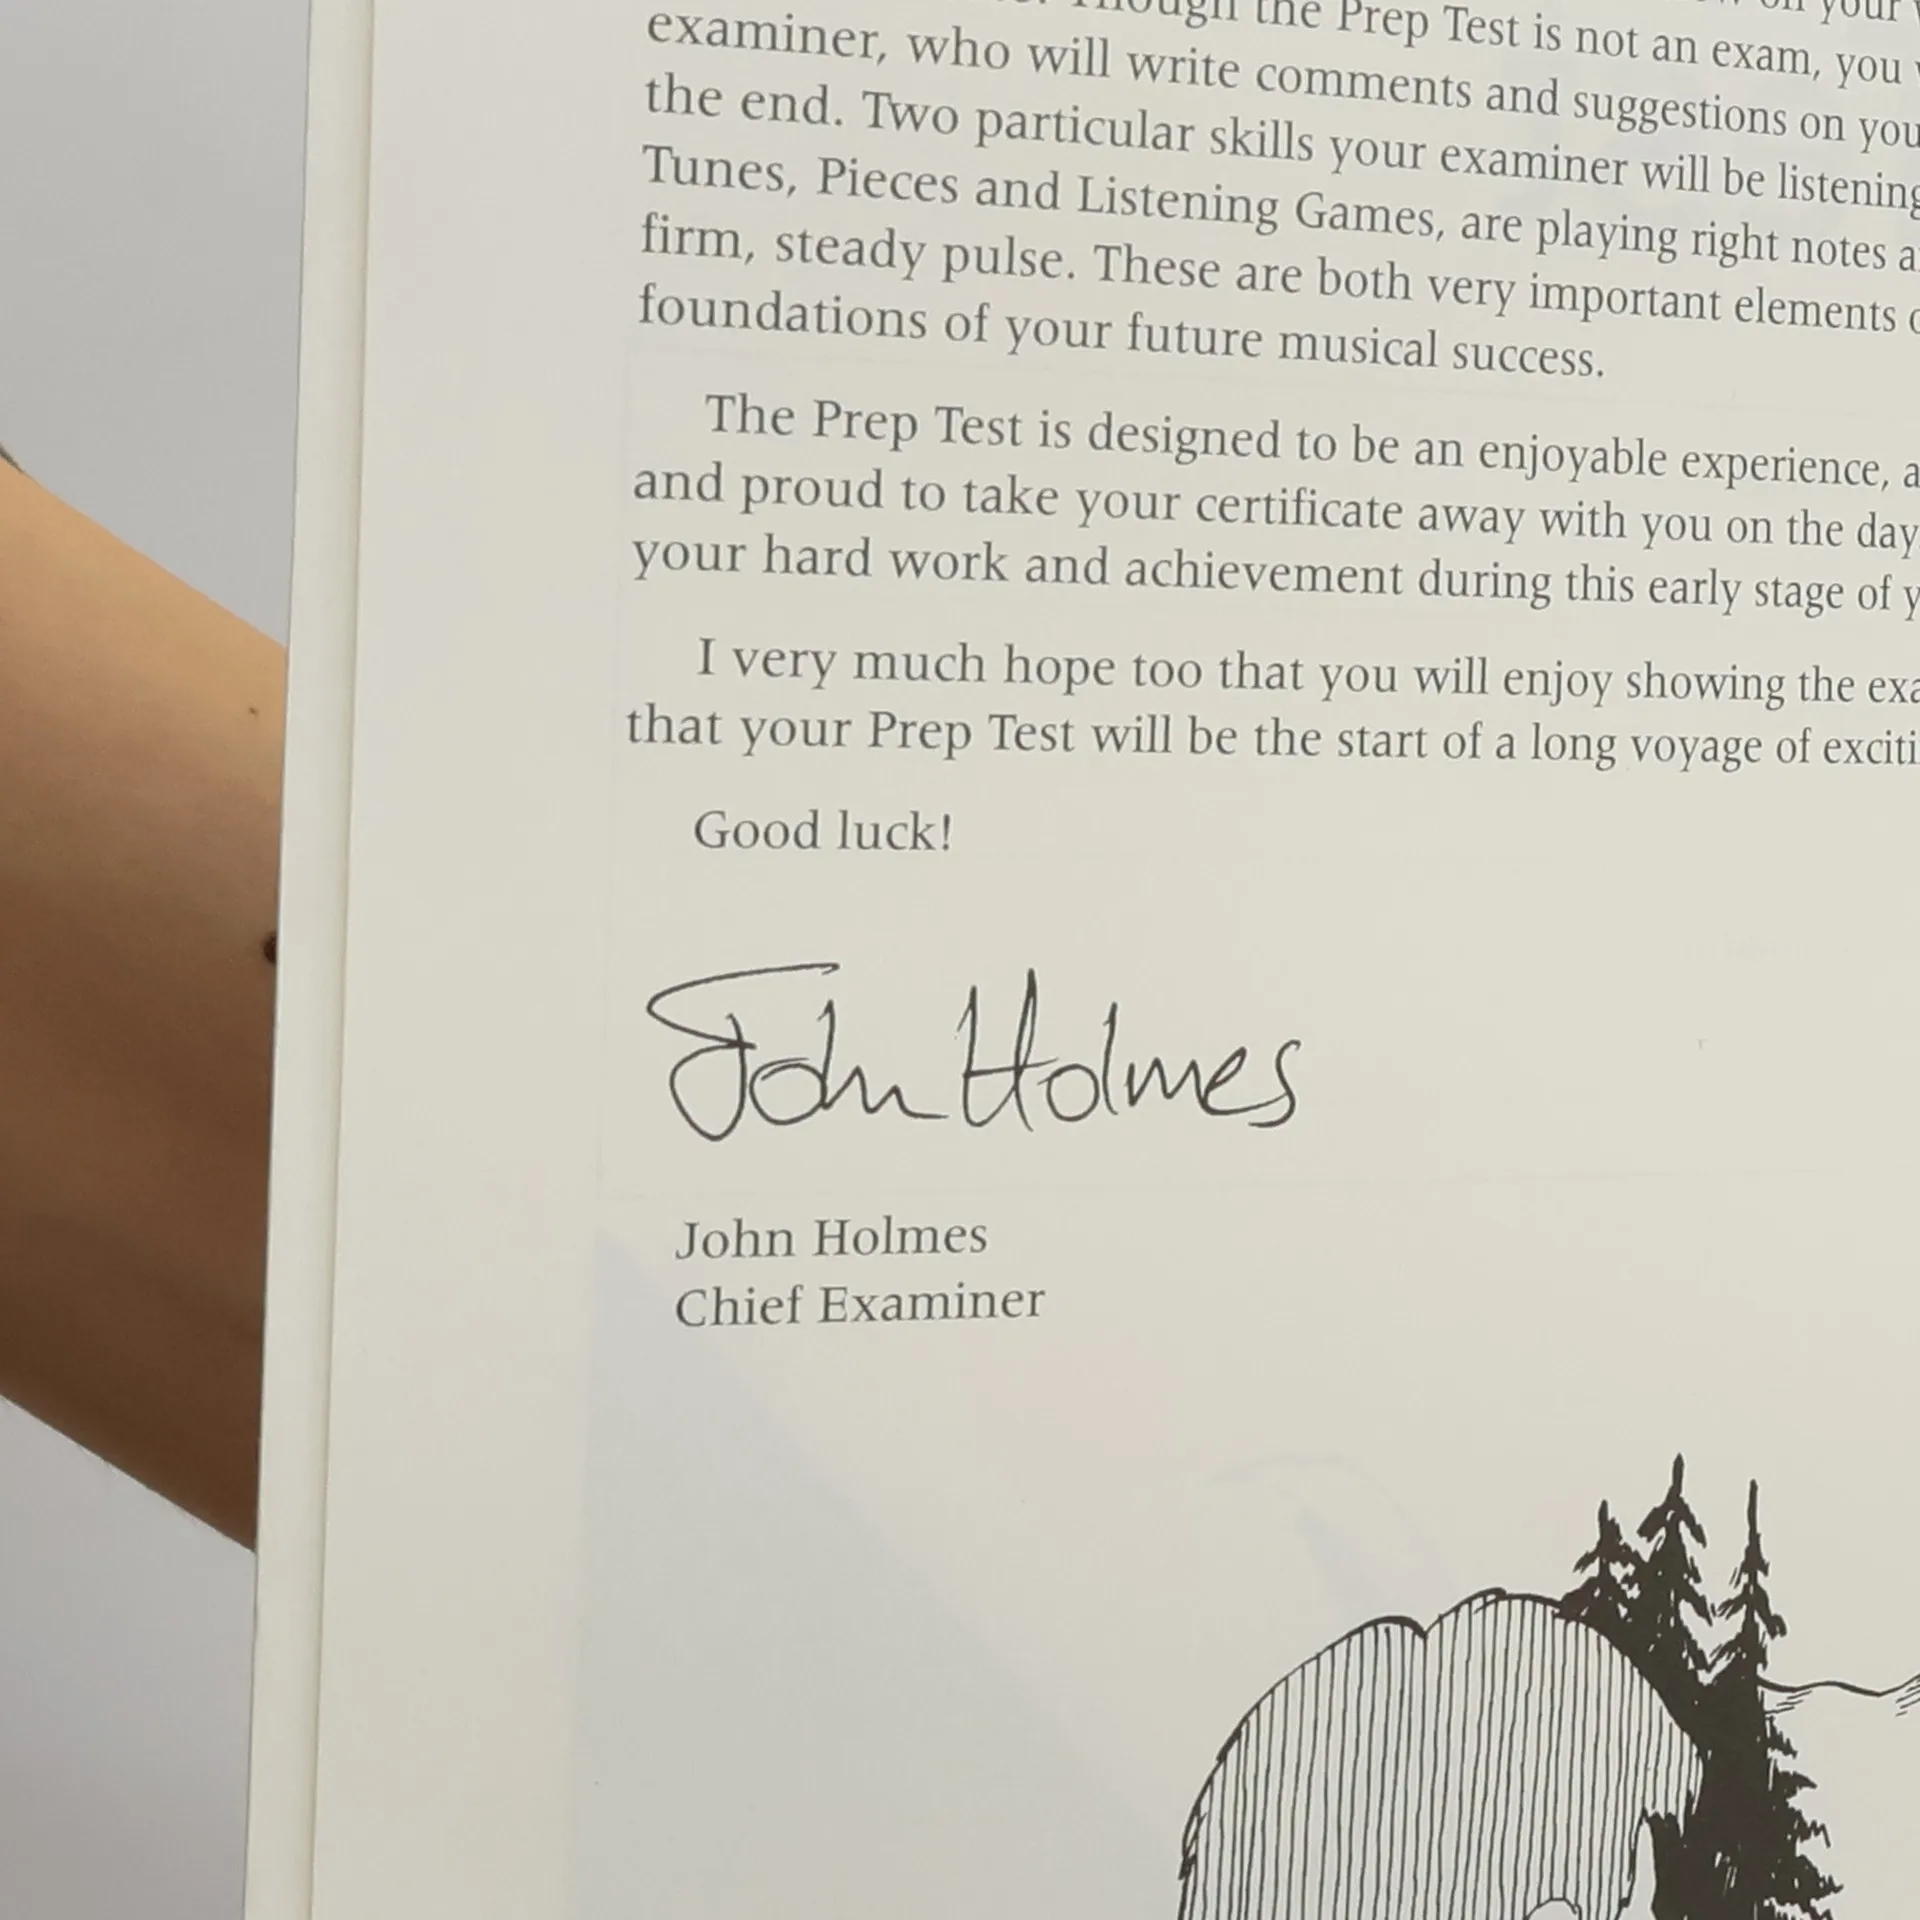 though the Prep Test is not an exam, you
examiner, who will write comments and suggestions on
the end. Two particular skills your examiner will be listening
Tunes, Pieces and Listening Games, are playing right notes
firm, steady pulse. These are both very important elements
foundations of your future musical success.
The Prep Test is designed to be an enjoyable experience,
and proud to take your certificate away with you on the day
your hard work and achievement during this early stage of
I very much hope too that you will enjoy showing the
that your Prep Test will be the start of a long voyage of
Good luck!
John Holmes
John Holmes
Chief Examiner